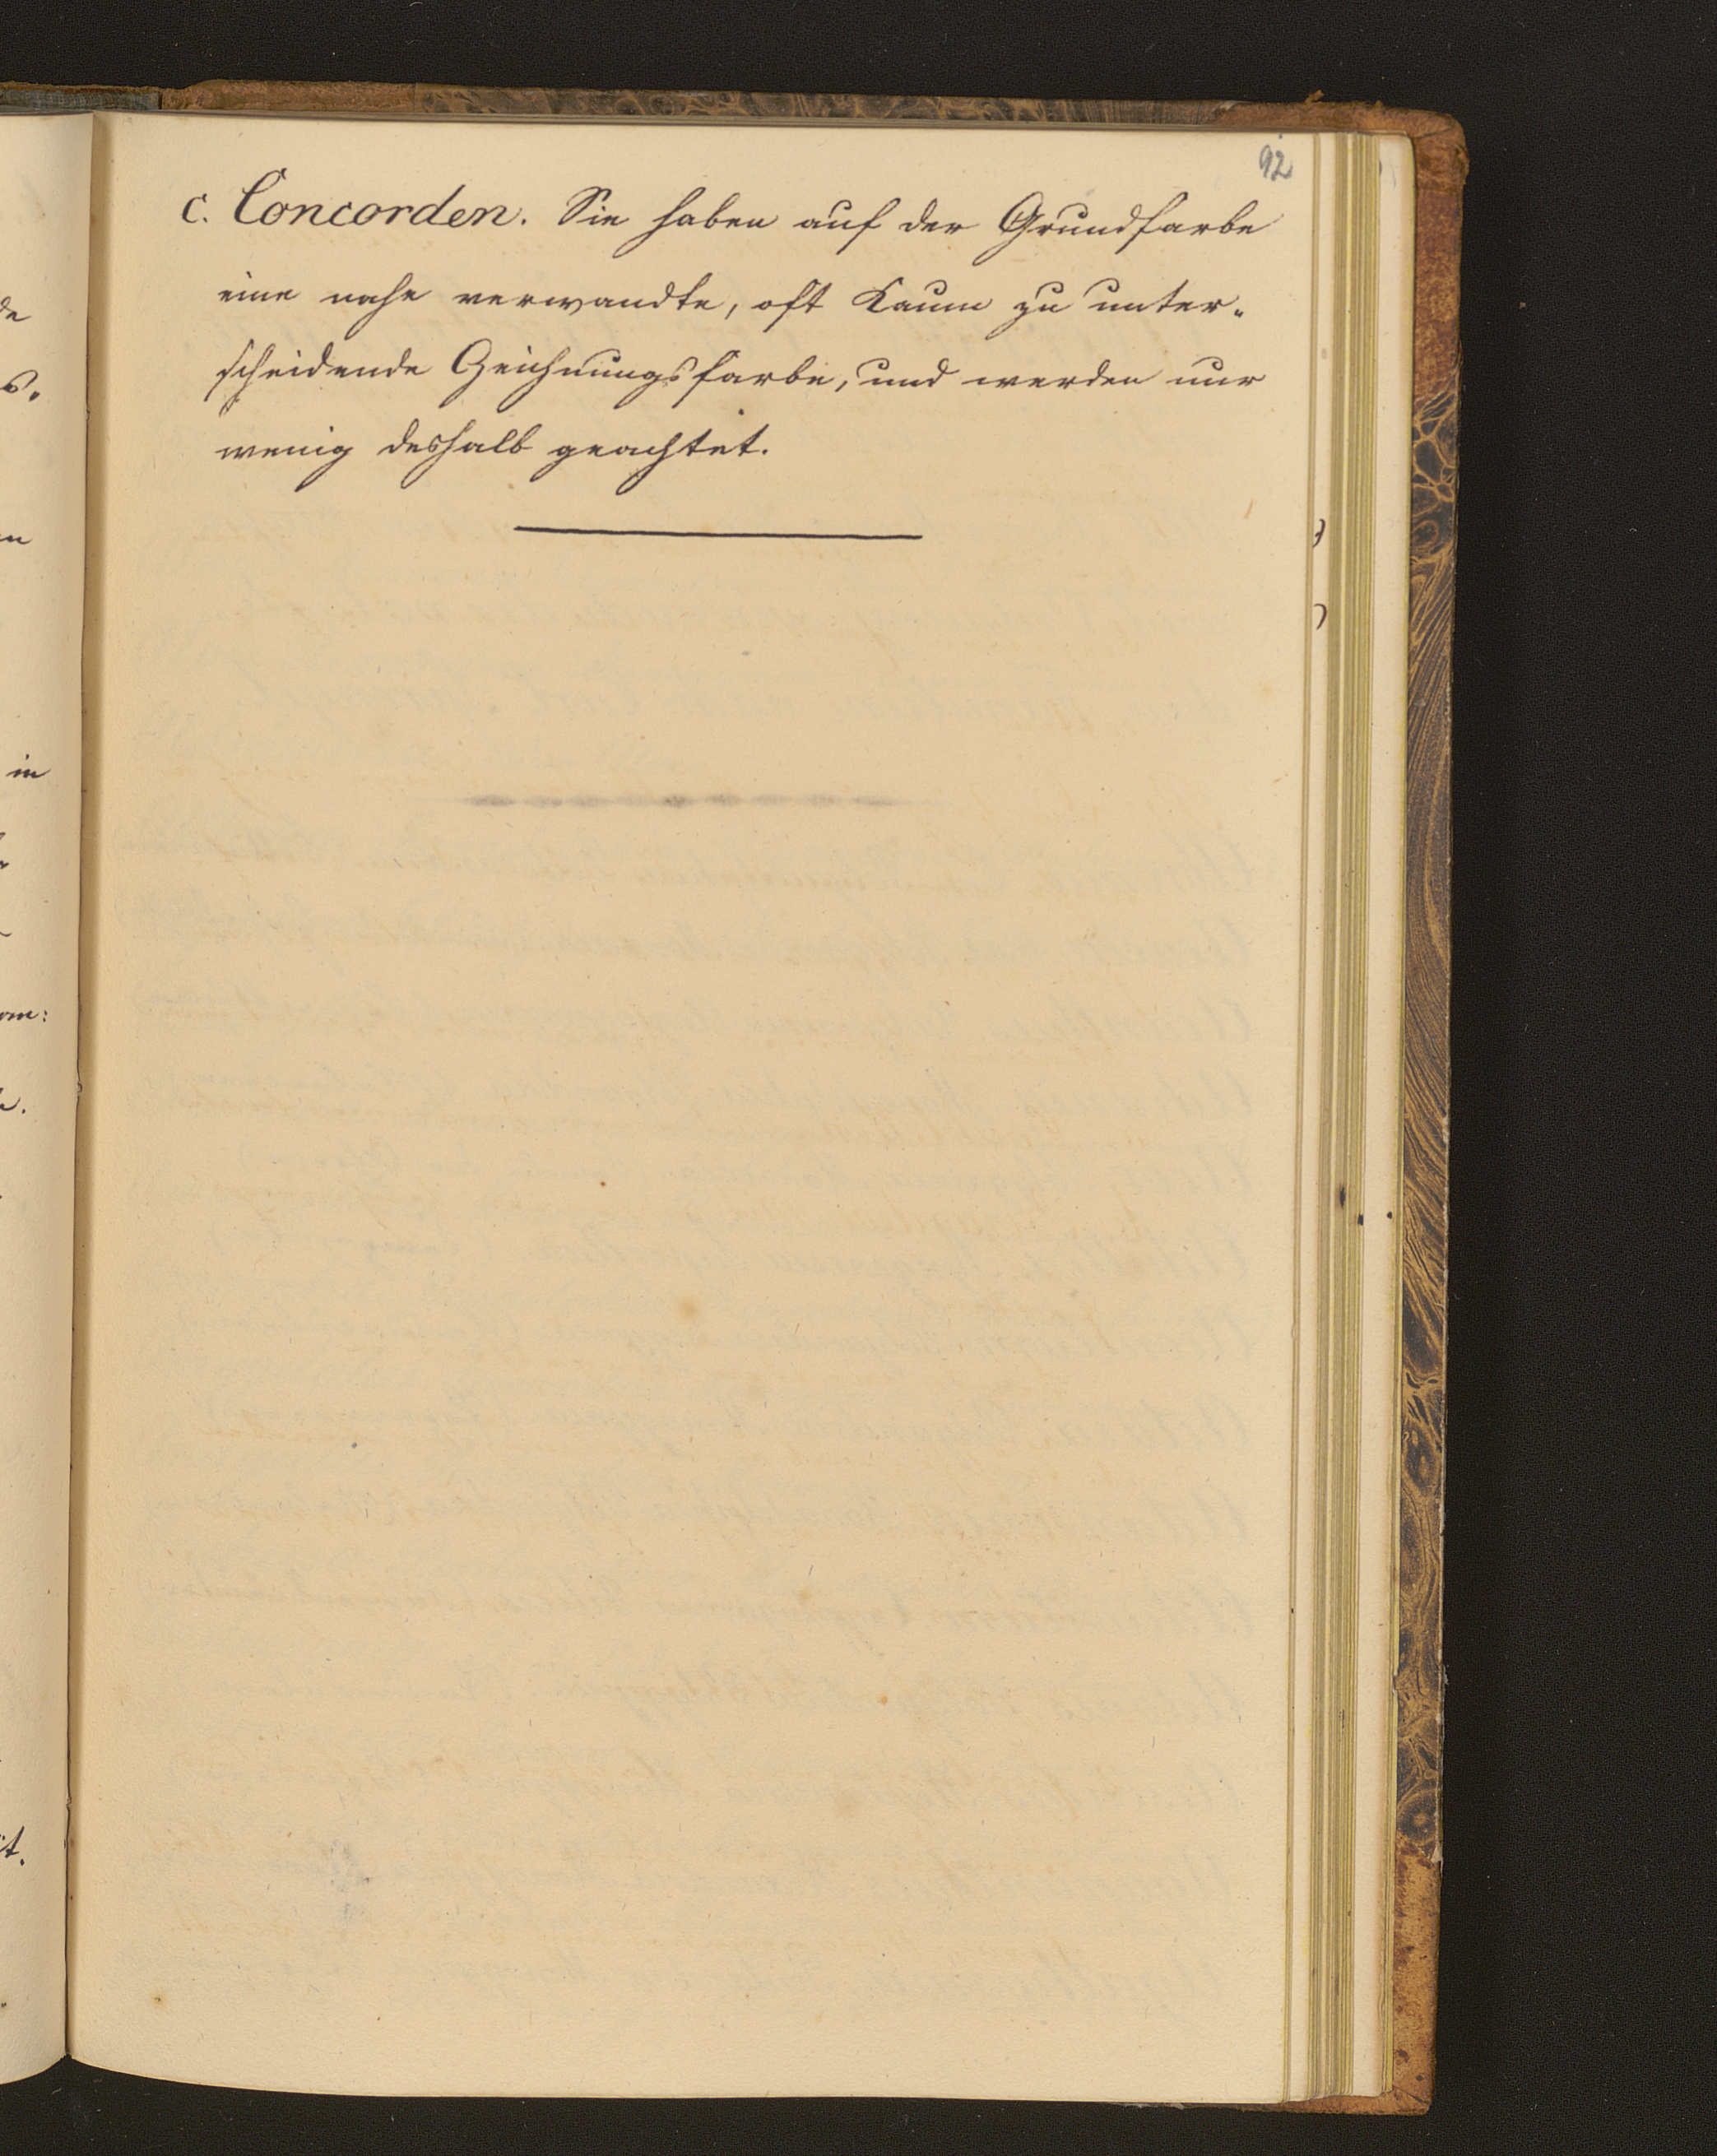 92
c. Concorden. Sie haben auf der Grundfarbe
eine nahe verwandte, oft kaum zu unter-
scheidende Zeichnungsfarbe, und werden nur
wenig deshalb geachtet.